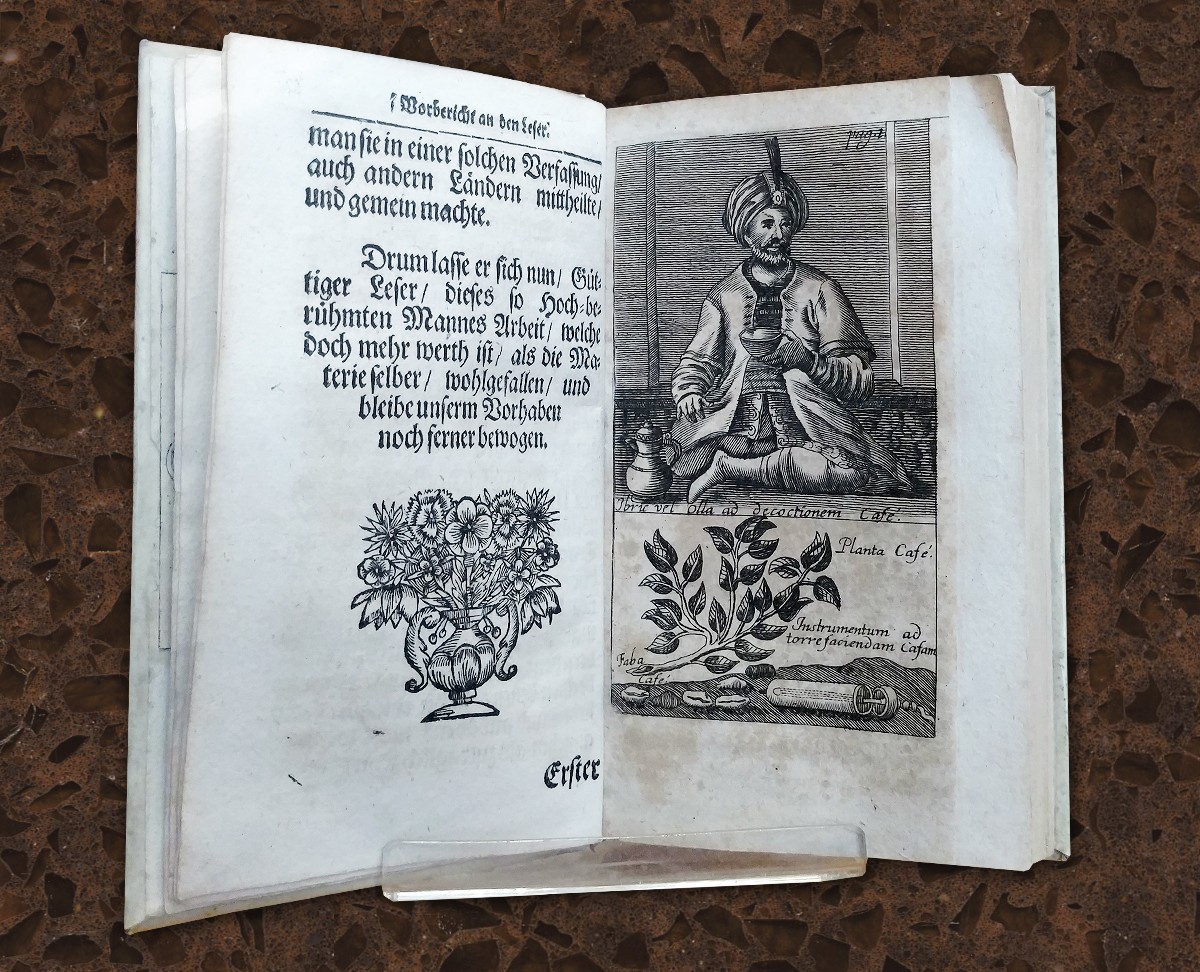 Vorbericht an den Leser.
man sie in einer solchen Verfassung/
auch andern Ländern mittheilte/
und gemein machte.
Drum lasse er sich nun/ Gü-
tiger Leser/ dieses so Hoch-be-
rühmten Mannes Arbeit/ welche
doch mehr werth ist/ als die Ma-
terie selber/ wohlgefallen/ und
bleibe unserm Vorhaben
noch ferner bewogen.
Erster
pag. 1
Ibric vel olla ad decoctionem Café.
Planta Café.
Instrumentum ad
torrefaciendam Cafam
Faba
Café